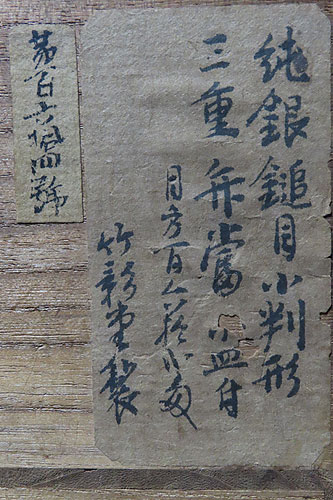 純銀鎚目小判形
三重弁當 小皿付
目方百八拾弐匁
竹影堂製
第百六拾四號